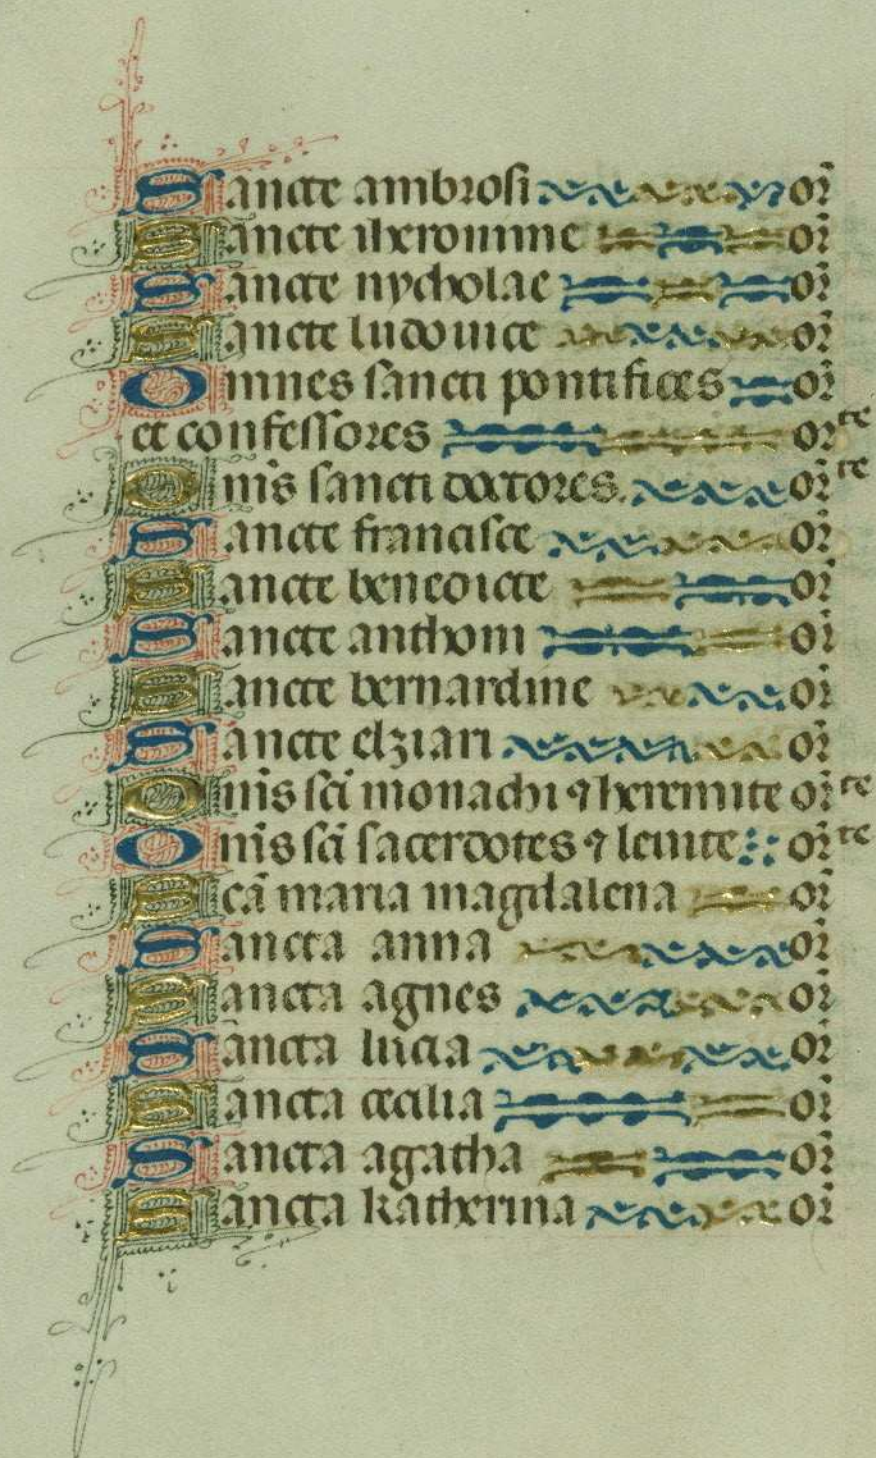 Sancte ambrosi or̄
Sancte iheronime or̄
Sancte nycholae or̄
Sancte ludouice or̄
Omnes sancti pontifices or̄
et confessores or̄te
Om̄s sancti doctores. or̄te
Sancte francisce or̄
Sancte benedicte or̄
Sancte anthoni or̄
Sancte bernardine or̄
Sancte elziari or̄
Om̄s sc̄i monachi ⁊ heremite or̄te
Om̄s sc̄i sacerdotes ⁊ leuite or̄te
Sc̄a maria magdalena or̄
Sancta anna or̄
Sancta agnes or̄
Sancta lucia or̄
Sancta cecilia or̄
Sancta agatha or̄
Sancta katherina or̄